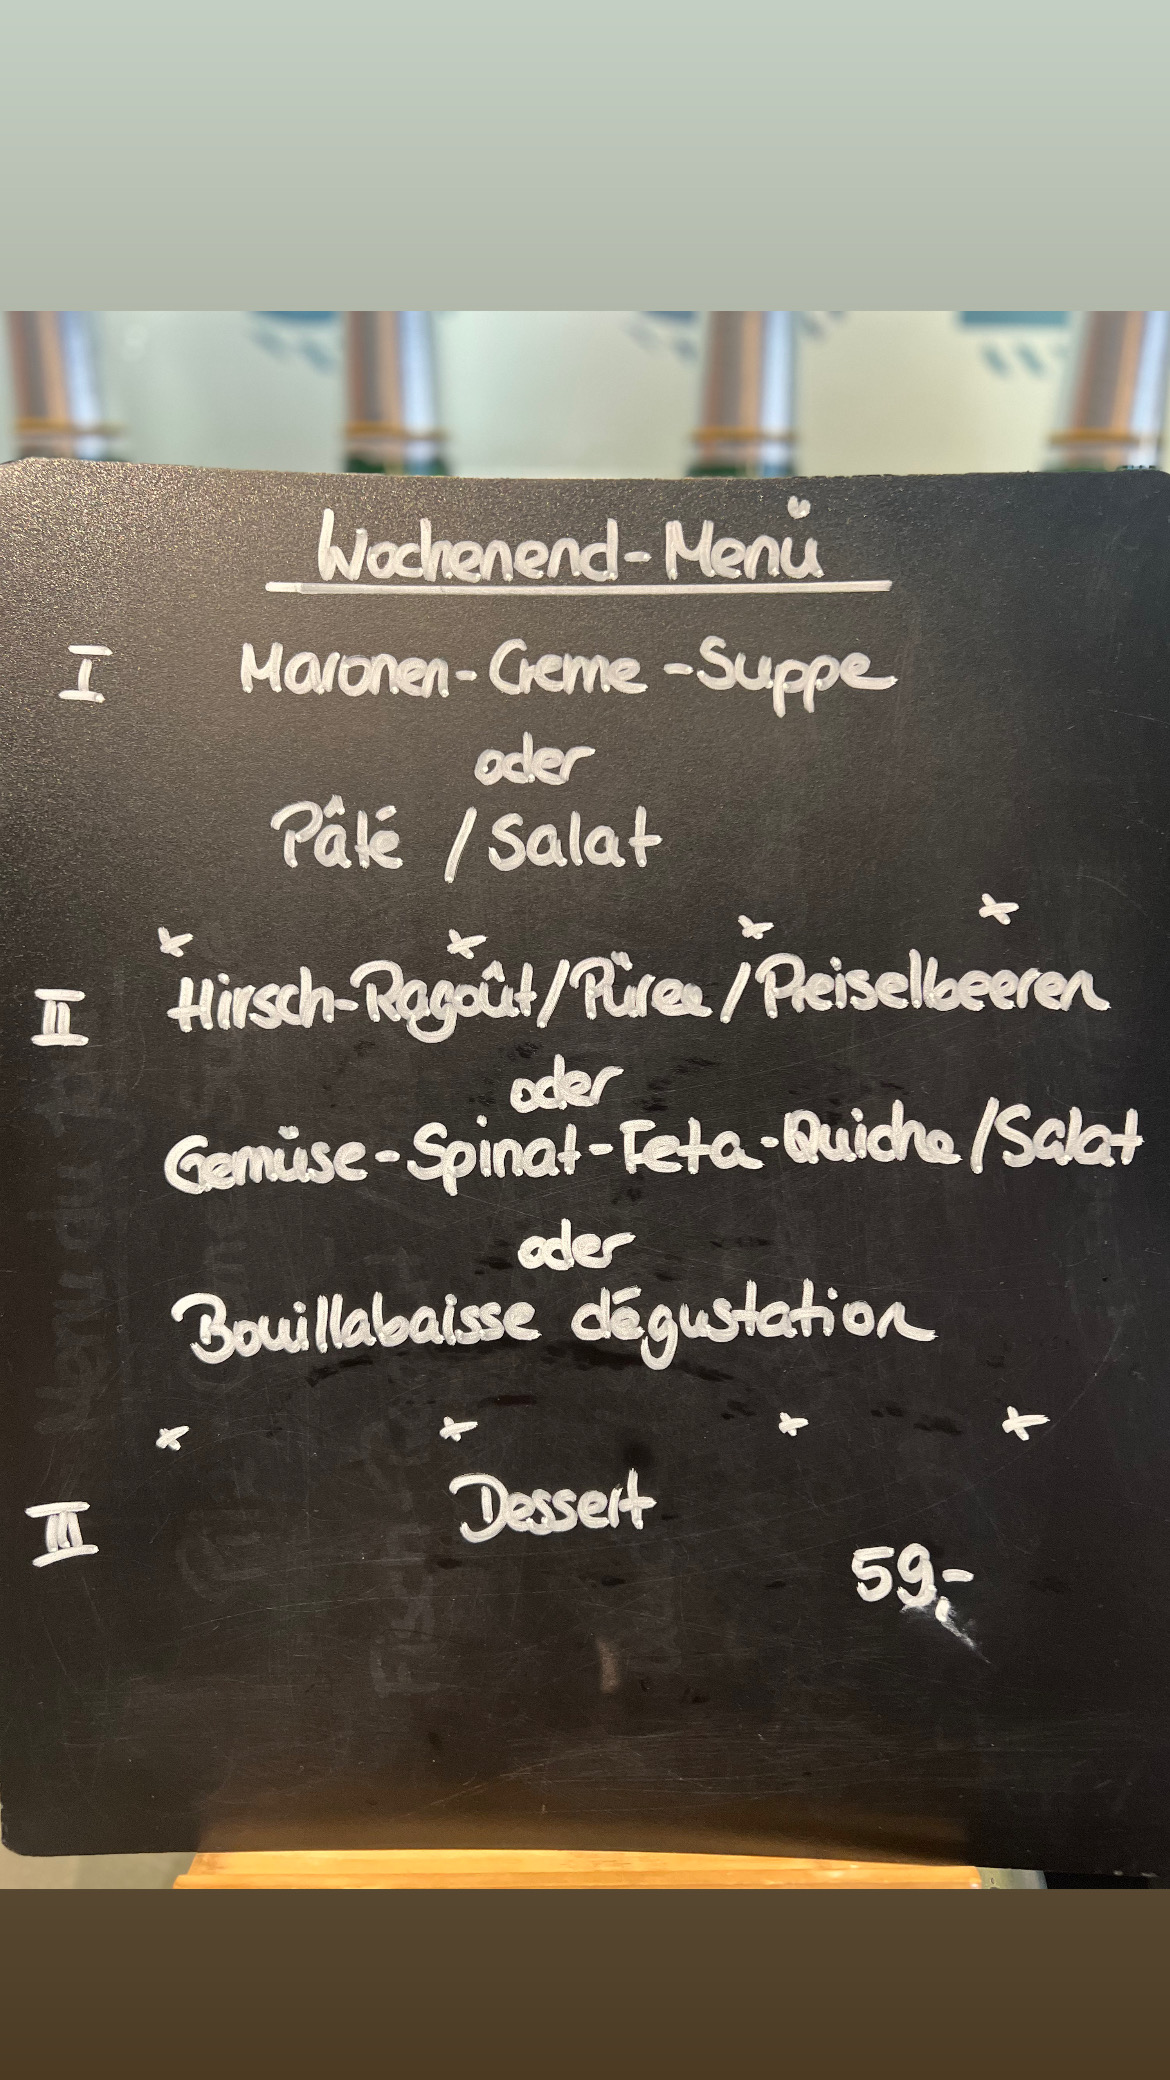 Wochenend-Menü
I Maronen-Creme-Suppe
oder
Pâté / Salat
II Hirsch-Ragoût/Püree/Preiselbeeren
oder
Gemüse-Spinat-Feta-Quiche/Salat
oder
Bouillabaisse dégustation
III Dessert
59,-